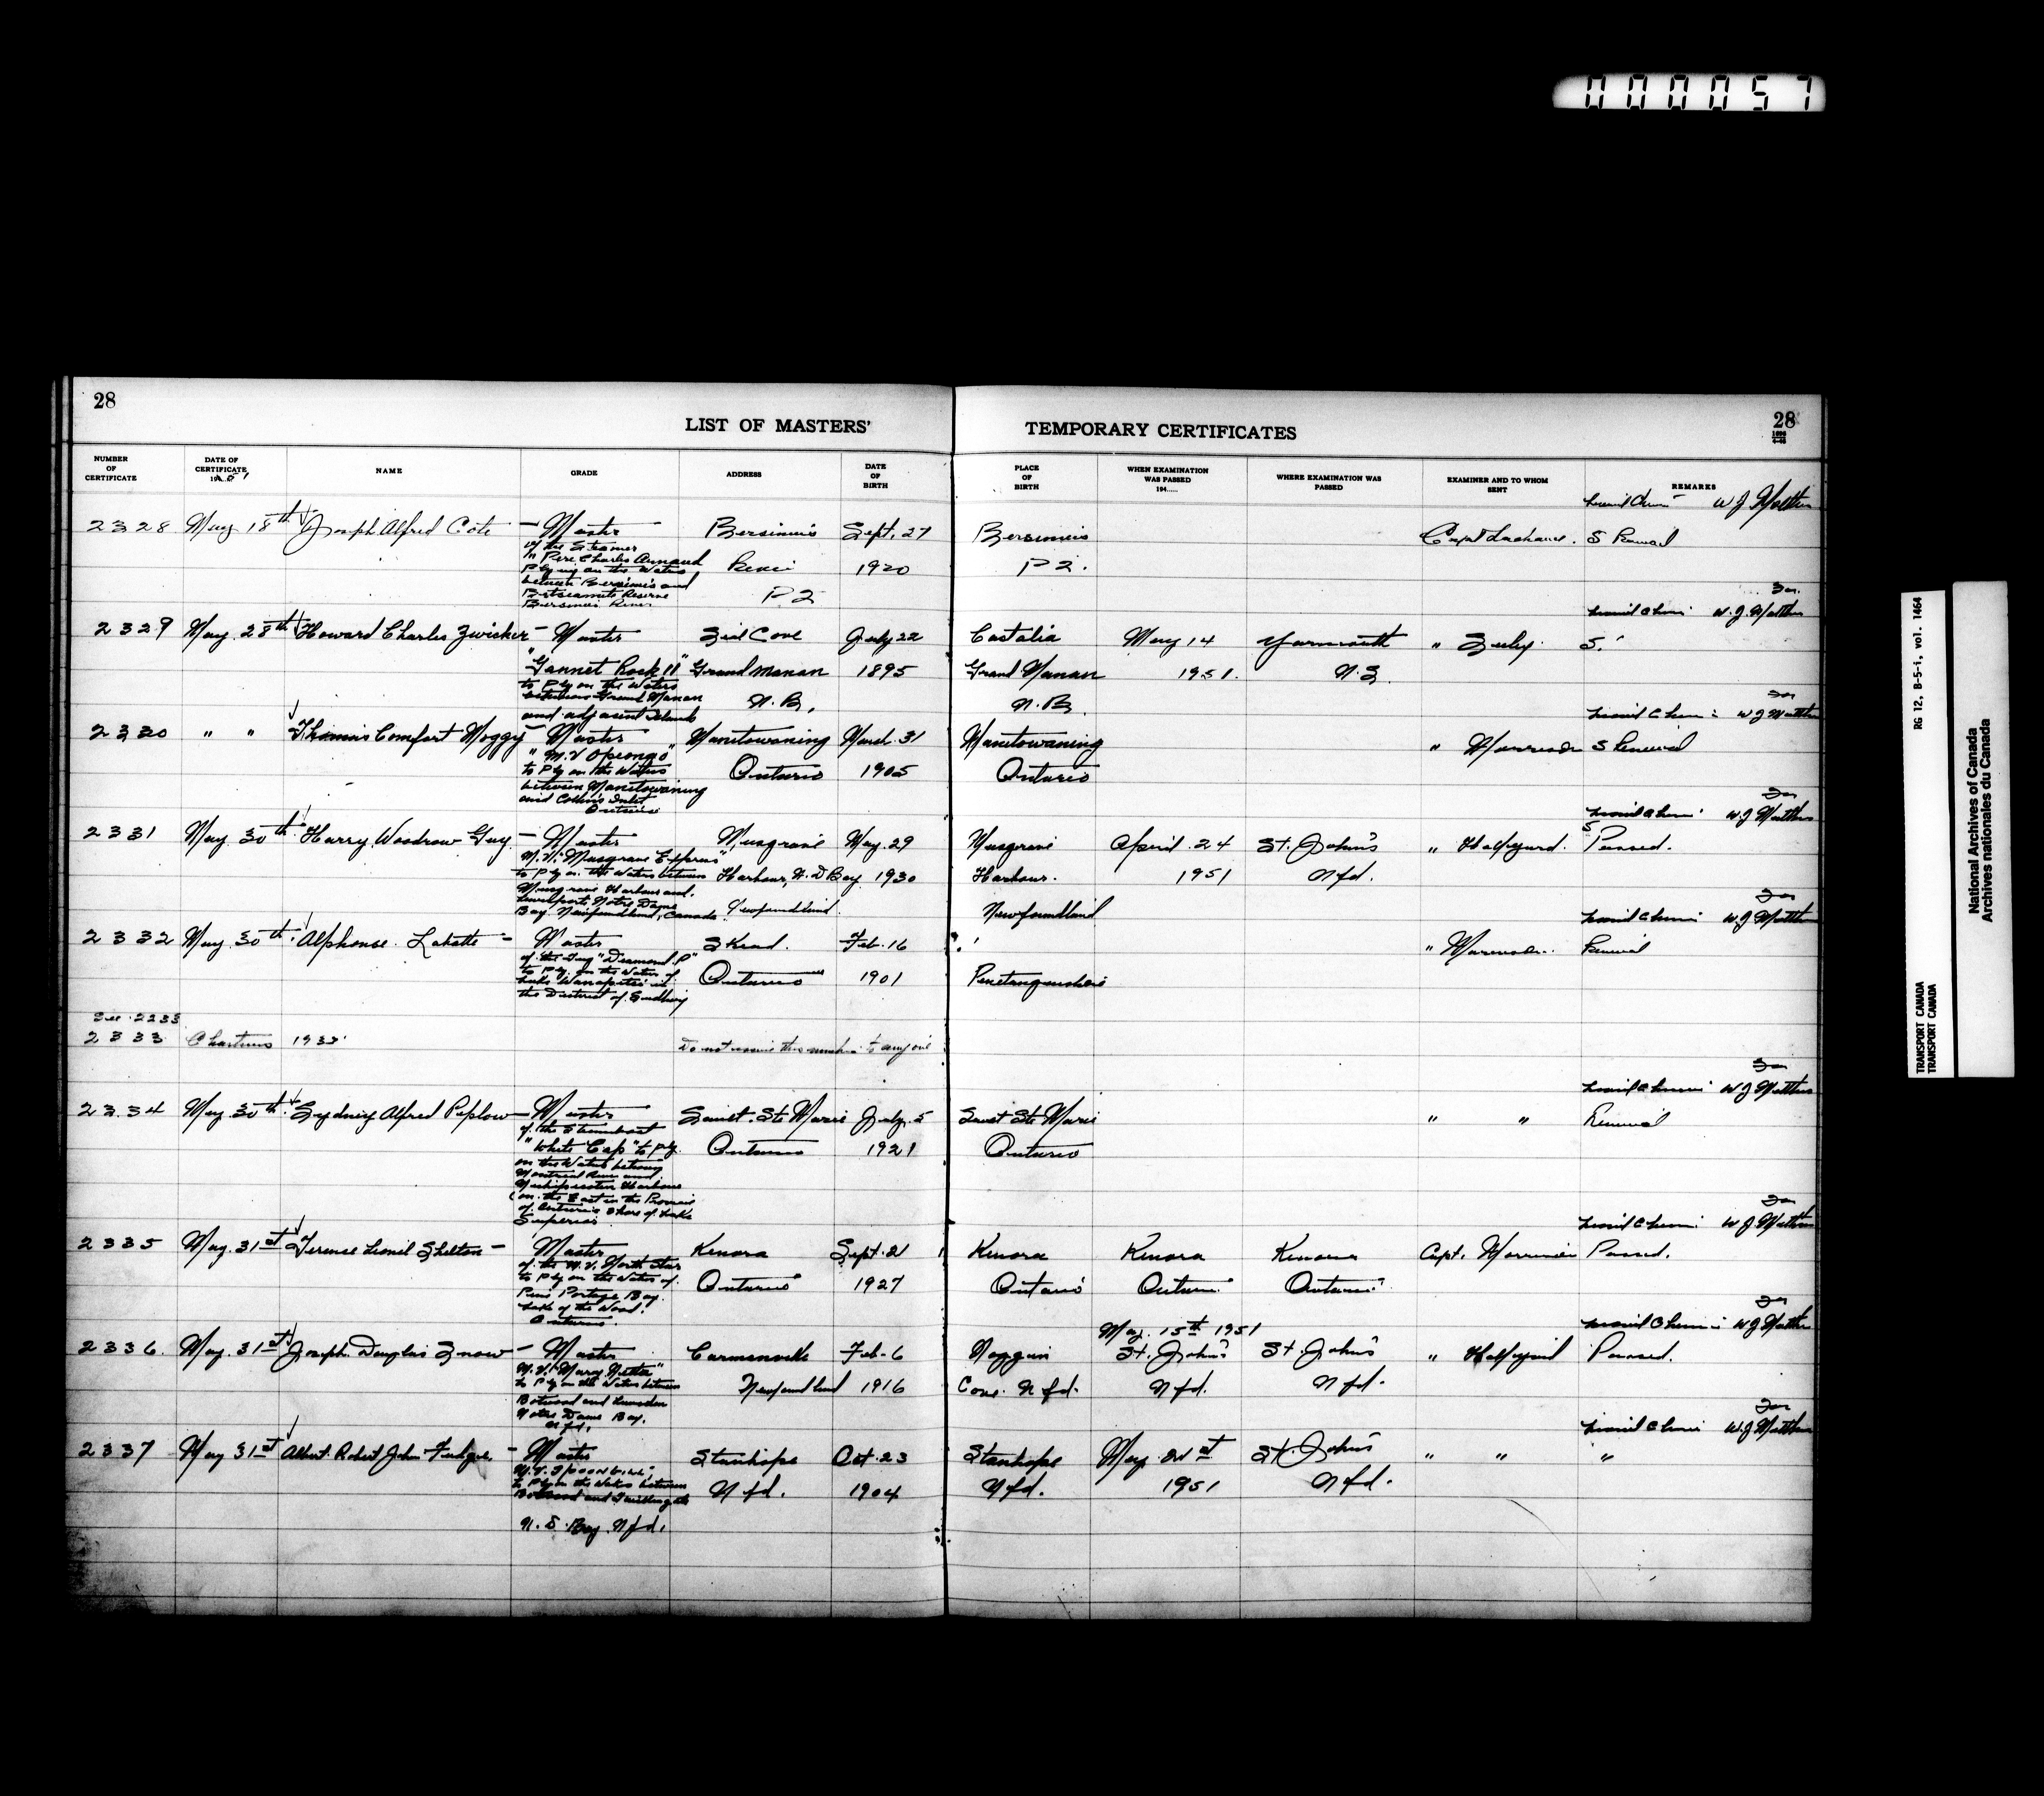 000057
28
LIST OF MASTERS'
TEMPORARY CERTIFICATES
28
NUMBER OF CERTIFICATE
DATE OF CERTIFICATE 1951
NAME
GRADE
ADDRESS
DATE OF BIRTH
PLACE OF BIRTH
WHEN EXAMINATION WAS PASSED 194.....
WHERE EXAMINATION WAS PASSED
EXAMINER AND TO WHOM SENT
REMARKS
W J Matthews
2328 May 18th Joseph Alfred Côté — Master Bersimis Sept. 27 Bersimis Capt Lachance. S Renewal
of the Steamer
"Pere Charles Arnaud River 1920 P2.
Plying on the Waters
between Bersimis and P2
Betsiamits Reserve
Bersimis River
for
W. J. Matthews
2329 May 28th Howard Charles Zwicker — Master Seal Cove July 22 Castalia May 14 Yarmouth " S.
"Gannet Rock II" Grand Manan 1895 Grand Manan 1951. N.S.
to Ply on the Waters
between Grand Manan N.B. N.B.
and adjacent Islands
for
W J Matthews
2330 " " Thomas Comfort Moggy — Master Manitowaning March 31 Manitowaning " Morrison S Renewal
"M.V Opeongo" Ontario 1905 Ontario
to Ply on the Waters
between Manitowaning
and Collins Inlet
Ontario
for
W J Matthews
2331 May 30th Harry Woodrow Guy — Master Musgrave May. 29 Musgrave April 24 St. John's " Halfyard. S Passed.
M.V. "Musgrave Express"
to Ply on the Waters between Harbour, N.D Bay 1930 Harbour. 1951 Nfd.
Musgrave Harbour and
Lewisporte Notre Dame
Bay. Newfoundland, Canada. Newfoundland. Newfoundland
for
W J Matthews
2332 May 30th Alphonse Labatte — Master Skead. Feb. 16 " Morrison. Renewal
of the Tug "Diamond P"
to Ply on the Waters of Ontario 1901 Penetanguishene
Lake Wanapitei in
the District of Sudbury
See 2233
2333 1935 Do not issue this number to anyone
for
W J Matthews
2334 May 30th Sydney Alfred Peplow — Master Sault Ste Marie July 5 Sault Ste Marie " " Renewal
of the Steamboat
"White Cap" to Ply Ontario 1921 Ontario
on the Waters between
Montreal River and
Michipicoten Harbour
on the East in the Province
of Ontario Shore of Lake
Superior
for
W J Matthews
2335 May 31st Terence Lionel Shelton — Master Kenora Sept. 21 Kenora Kenora Kenora Capt. Morrison Passed.
of the M.V. North Star
to Ply on the Waters of Ontario 1927 Ontario Ontario Ontario
Portage Bay.
Lake of the Woods.
Ontario.
for
May. 15th 1951 W J Matthews
2336 May. 31st Joseph Douglas Snow — Master Carmanville Feb. 6 Noggin St. John's St. John's " Halfyard Passed.
M.V. "Mary Nettie"
to Ply on the Waters between Newfoundland 1916 Cove. Nfd. Nfd. Nfd.
Botwood and Lumsden
Notre Dame Bay.
Nfd.
for
W J Matthews
2337 May 31st Albert Robert John Fudge. — Master Stanhope Oct. 23 Stanhope May St. John's " " "
to Ply on the Waters between
Botwood and Twillingate Nfd. 1904 Nfd. 1951 Nfd.
N.D. Bay. Nfd.
RG 12, B-5-i, vol. 1464
TRANSPORT CANADA
TRANSPORT CANADA
National Archives of Canada
Archives nationales du Canada